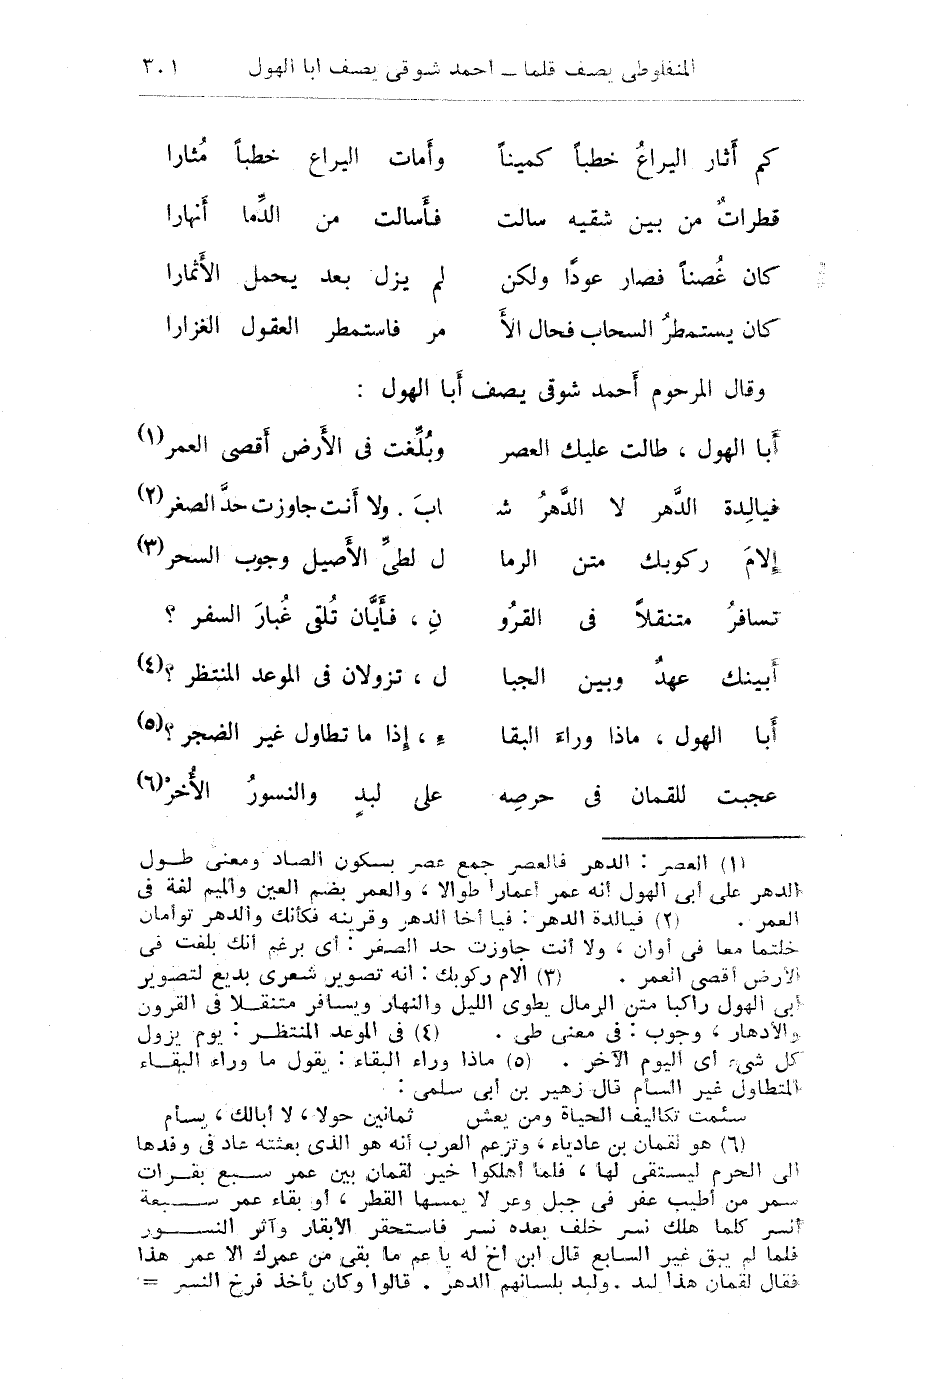 المنفلوطى يصف قلما ــ احمد شوقى يصف ابا الهول ٣٠١
كم أَثار اليراعُ خطباً كميناً وأَمات اليراع خطباً مُثارا
قطراتٌ من بين شقيه سالت فأَسالت من الدِّما أَنهارا
كان غُصناً فصار عودًا ولكن لم يزل بعد يحمل الأَثمارا
كان يستمطرُ السحاب فحال الأَ مر فاستمطر العقول الغزارا
وقال المرحوم أَحمد شوقى يصف أَبا الهول :
أَبا الهول ، طالت عليك العصر وبُلِّغت فى الأَرض أَقصى العمر(١)
فيالِدة الدَّهر لا الدَّهرُ شـ ابَ . ولا أَنت جاوزت حدَّ الصغر(٢)
إِلامَ ركوبك متن الرما ل لطىِّ الأَصيل وجوب السحر(٣)
تسافرُ متنقلاً فى القرُو نِ ، فأَيَّان تُلقى غُبارَ السفر ؟
أَبينك عهدٌ وبين الجبا ل ، تزولان فى الموعد المنتظر ؟(٤)
أَبا الهول ، ماذا وراءَ البقا ءِ ، إِذا ما تطاول غير الضجر ؟(٥)
عجبت للقمان فى حرصِه على لبدٍ والنسورُ الأُخرْ(٦)
(١) العصر : الدهر فالعصر جمع عصر بسكون الصاد ومعنى طـول
الدهر على أبى الهول أنه عمر أعمارا طوالا ، والعمر بضم العين والميم لغة فى
العمر . (٢) فيالدة الدهر : فيا أخا الدهر وقرينه فكأنك والدهر توأمان
خلقتما معا فى أوان ، ولا أنت جاوزت حد الصغر : أى برغم أنك بلغت فى
الأرض أقصى العمر . (٣) الام ركوبك : انه تصوير شعرى بديع لتصوير
أبى الهول راكبا متن الرمال يطوى الليل والنهار ويسافر متنقـلا فى القرون
والأدهار ، وجوب : فى معنى طى . (٤) فى الموعد المنتظـر : يوم يزول
كل شىء أى اليوم الآخر . (٥) ماذا وراء البقاء : يقول ما وراء البقـاء
المتطاول غير السأم قال زهير بن أبى سلمى :
سئمت تكاليف الحياة ومن يعش ثمانين حولا ، لا أبالك ، يسأم
(٦) هو لقمان بن عادياء ، وتزعم العرب أنه هو الذى بعثته عاد فى وفدها
الى الحرم ليستقى لها ، فلما أهلكوا خير لقمان بين عمر سـبع بقـرات
سمر من أطيب عفر فى جبل وعر لا يمسها القطر ، أو بقاء عمر سـبعة
أنسر كلما هلك نسر خلف بعده نسر فاستحقر الأبقار وآثر النسـور
فلما لم يبق غير السابع قال ابن أخ له يا عم ما بقى من عمرك الا عمر هذا
فقال لقمان هذا لبد . ولبد بلسانهم الدهر . قالوا وكان يأخذ فرخ النسر =